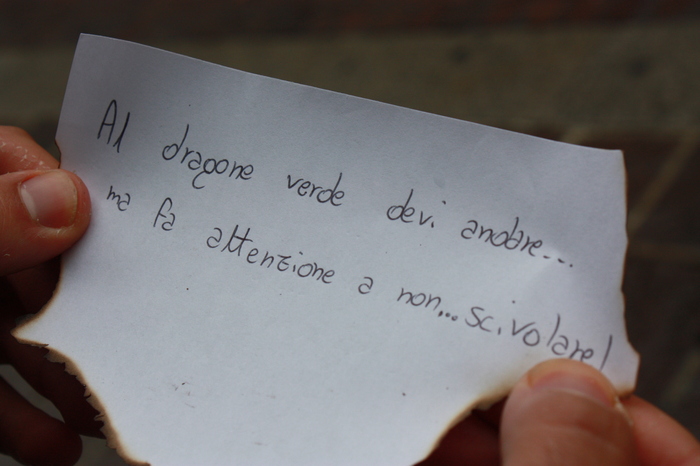 Al dragone verde devi andare...
ma fa attenzione a non... scivolare!